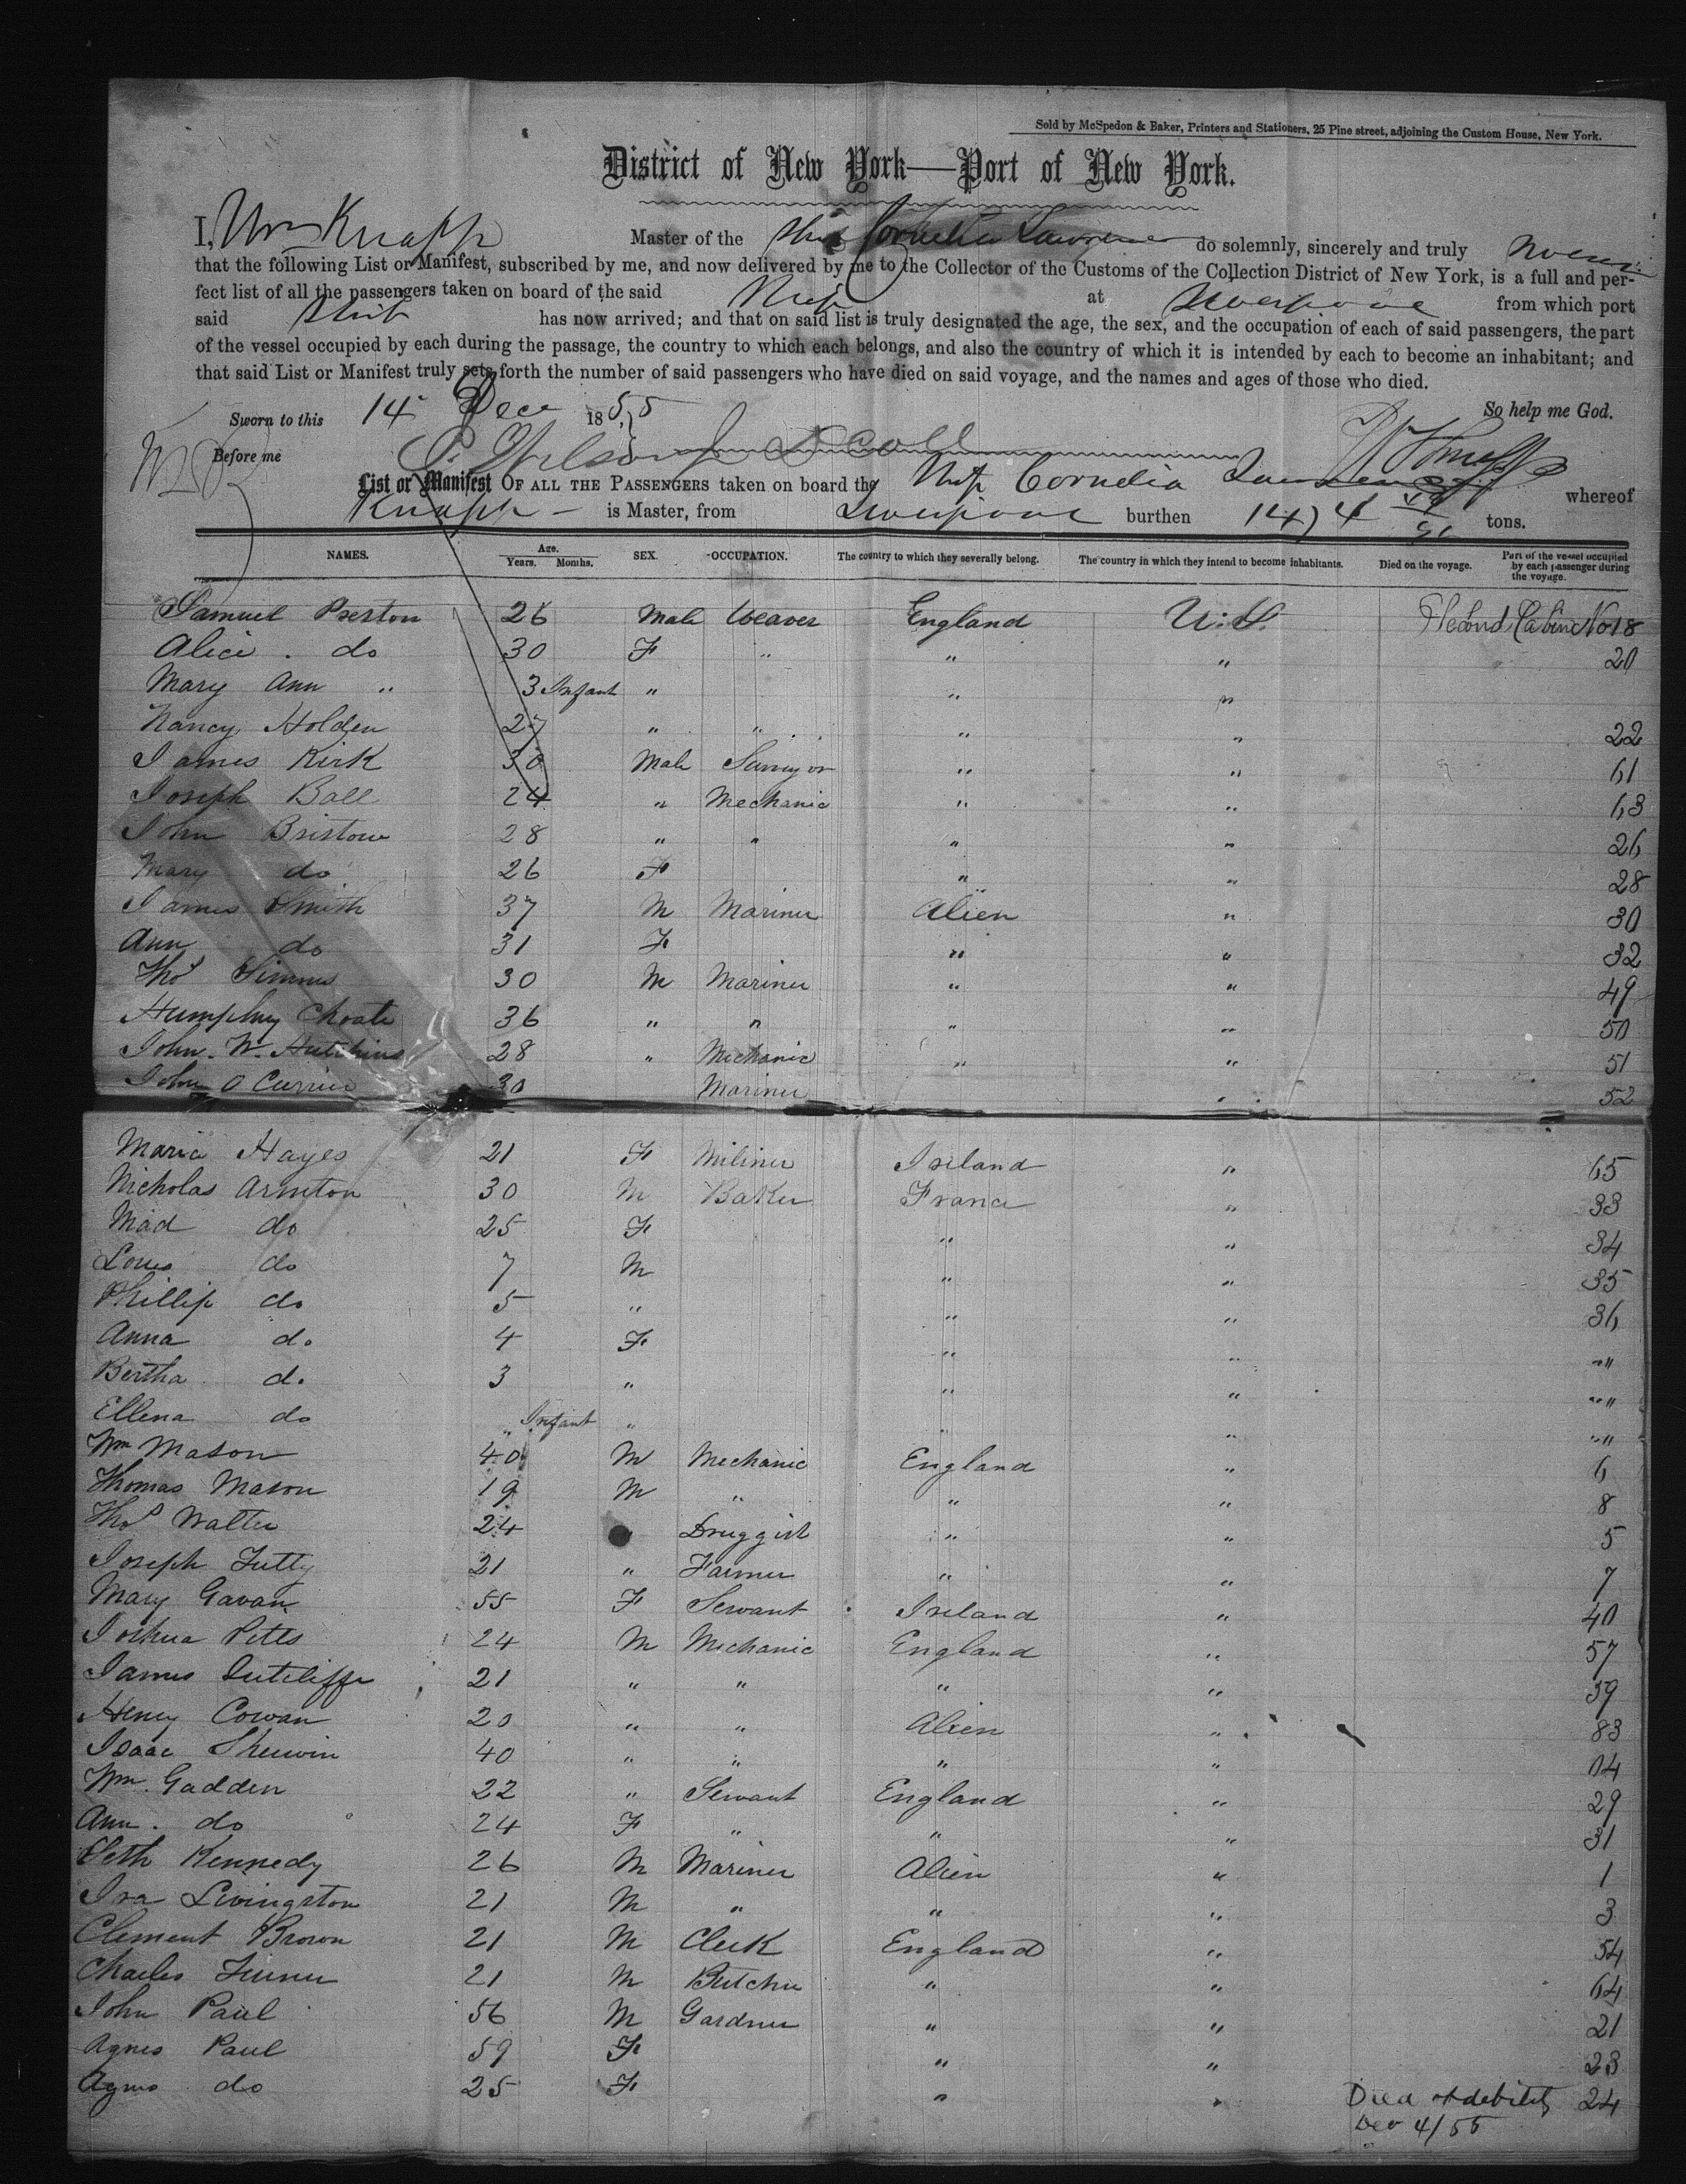 Sold by McSpedon & Baker, Printers and Stationers, 25 Pine street, adjoining the Custom House, New York.
District of New York—Port of New York.
I, Wm Knapp Master of the Ship Cornelia Lawrence do solemnly, sincerely and truly
that the following List or Manifest, subscribed by me, and now delivered by me to the Collector of the Customs of the Collection District of New York, is a full and per-
fect list of all the passengers taken on board of the said Ship at Liverpool from which port
said Ship has now arrived; and that on said list is truly designated the age, the sex, and the occupation of each of said passengers, the part
of the vessel occupied by each during the passage, the country to which each belongs, and also the country of which it is intended by each to become an inhabitant; and
that said List or Manifest truly sets forth the number of said passengers who have died on said voyage, and the names and ages of those who died.
Sworn to this 14 Dece 1855 So help me God.
Before me
List or Manifest OF ALL THE PASSENGERS taken on board the Ship Cornelia Lawrence whereof
Knapp is Master, from Liverpool burthen tons.
NAMES. Age. Years. Months. SEX. OCCUPATION. The country to which they severally belong. The country in which they intend to become inhabitants. Died on the voyage. Part of the vessel occupied by each passenger during the voyage.
Samuel Preston 26 Male Weaver England U.S. Second Cabin No 18
Alice . do 30 F " " " 20
Mary Ann " 3 Infant " " "
Nancy Holden 27 " " " " 22
James Kirk 30 Male " " 61
Joseph Ball 24 " Mechanic " " 63
John Bristow 28 " " " " 26
Mary do 26 F " " 28
James Smith 37 M Mariner Alien " 30
Ann do 31 F " " 32
Thos Simms 30 M Mariner " " 49
Humphrey Choate 36 " " " " 50
John. W. Hutchins 28 " Mechanic " " 51
John O Currier 30 Mariner " 52
Maria Hayes 21 F Miliner Ireland " 65
Nicholas Arnton 30 M Baker France " 33
Mad do 25 F " " 34
Louis do 7 M " " 35
Phillip do 5 " " " 36
Anna do 4 F " " " "
Bertha do 3 " " " " "
Ellena do " Infant " " " " "
Wm Mason 40 M Mechanic England " 6
Thomas Mason 19 M " " " 8
Thos Walter 24 " Druggist " " 5
Joseph Tutty 21 " Farmer " " 7
Mary Gavan 55 F Servant Ireland " 40
Joshua Pitts 24 M Mechanic England " 57
James Sutcliffe 21 " " " " 59
Henry Cowan 20 " " Alien " 83
Isaac Sherwin 40 " " " "
Wm. Gadden 22 " Servant England " 29
Ann. do 24 F " " " 31
Seth Kennedy 26 M Mariner Alien " 1
Ira Livingston 21 M " " " 3
Clement Brown 21 M Clerk England " 54
Charles Turner 21 M Butcher " " 64
John Paul 56 M Gardner " " 21
Agnes Paul 59 F " " 23
Agnes do 25 F " " Died of debility 24
Dec 4/55